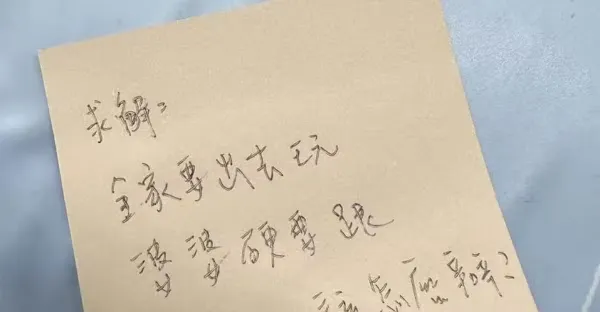 求解：
全家要出去玩
婆婆硬要跟
該怎麼辦？